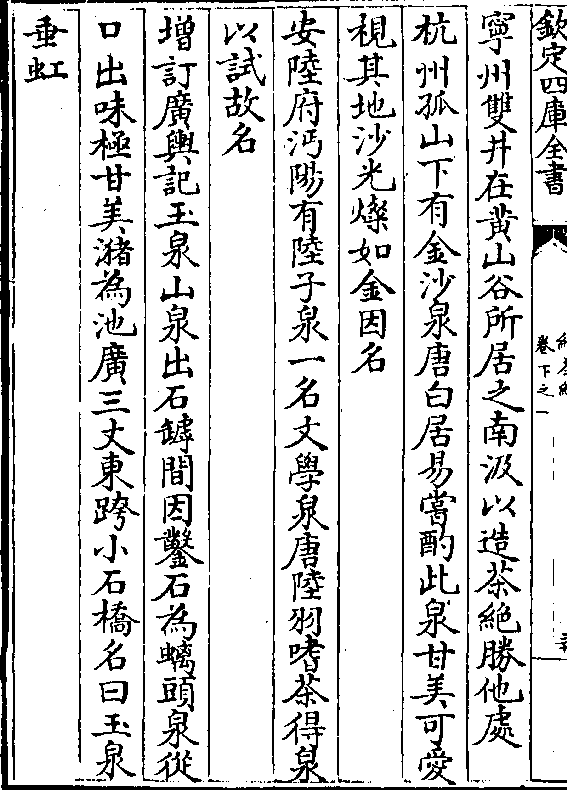 欽定四庫全書
卷下之一
寧州雙井在黄山谷所居之南汲以造茶絶勝他處
杭州孤山下有金沙泉唐白居易嘗酌此泉甘美可愛
視其地沙光燦如金因名
安陸府沔陽有陸子泉一名文學泉唐陸羽嗜茶得泉
以試故名
増訂廣輿記玉泉山泉出石罅間因鑿石為螭頭泉從
口出味極甘美瀦為池廣三丈東跨小石橋名曰玉泉
垂虹